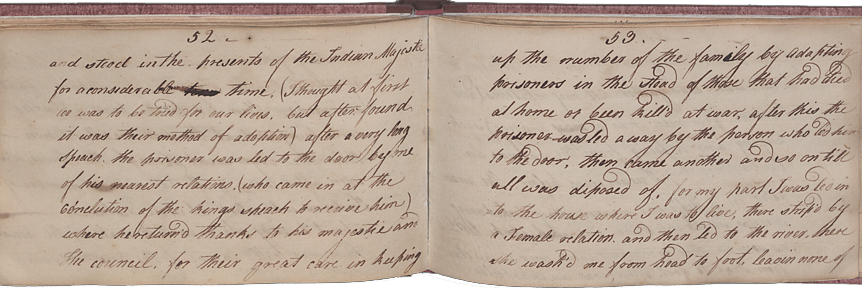 52
and stood in the presents of the Indian Majesti
for a considerable time. (I thought at first
we was to be tried for our lives, but after found
it was their method of adoption) after a very long
speach, the prisoner was led to the door, by me
of his nearest relations, (who came in at the
conclution of the kings speach to receive him)
where he return'd thanks to his majestie and
the council, for their great care in keeping
53
up the number of the family by adopting
prisoners in the stead of those that had died
at home or been kill'd at war, after this the
prisoner was led away by the person who led him
to the door, then came another and so on till
all was diposed of, for my part I was led in
to the house where I was to live, there strip'd by
a Female relation and then led to the river, there
she wash'd me from head to foot, leavin none of